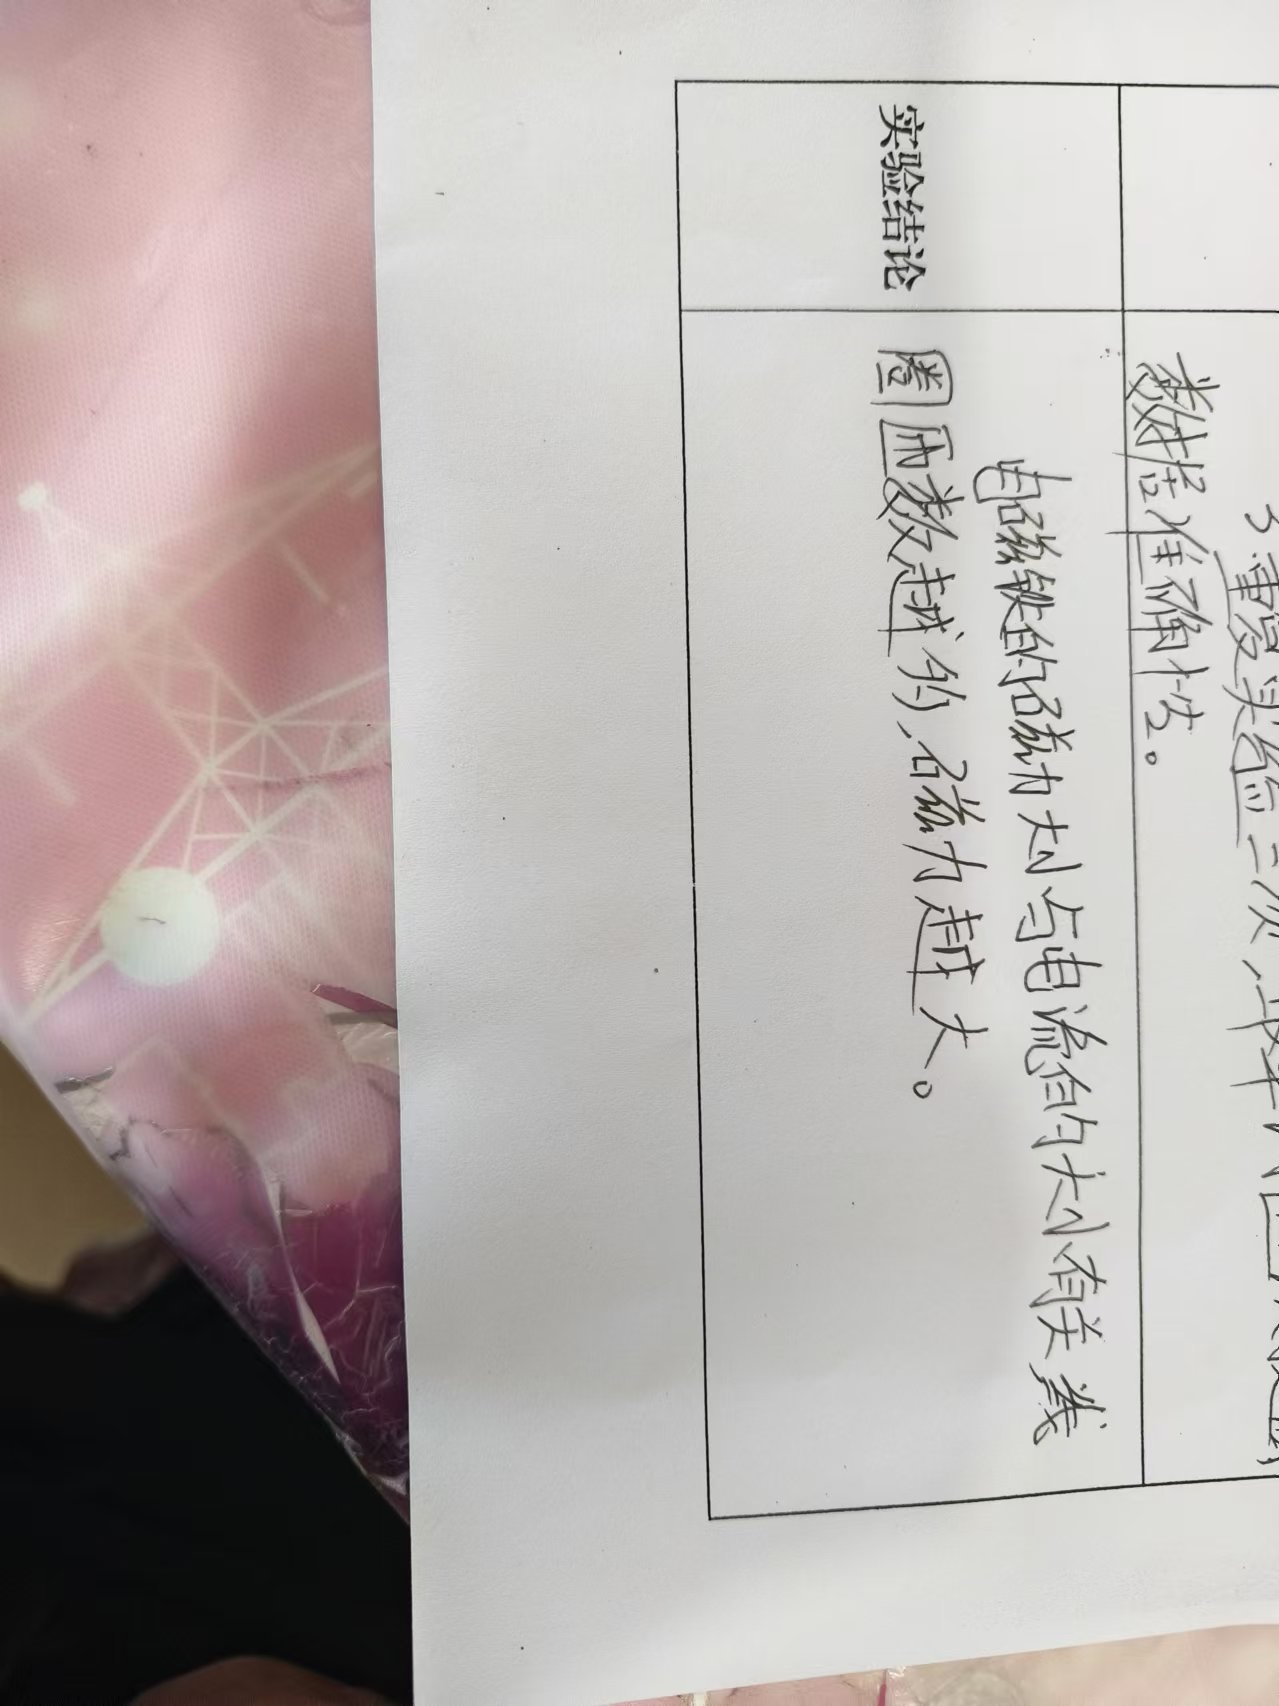 3.重复实验三次
数据准确性。
实验结论
电磁铁的磁力大小与电流的大小有关
圈匝数越多,磁力越大。